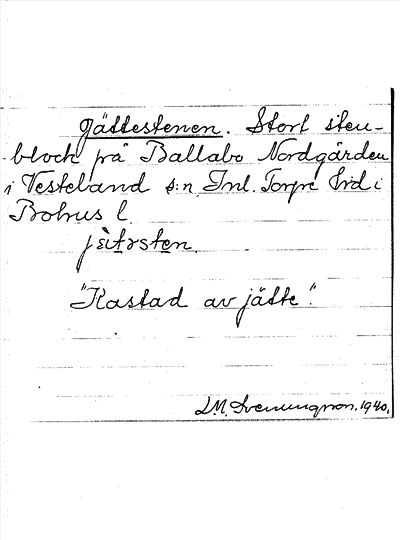 Jättestenen. Stort sten-
block på Ballabo Nordgården
i Vesteland s:n Inl. Torpe hrd i
Bohus l.
"Kastad av jätte".
S.M. Svenungson. 1940.